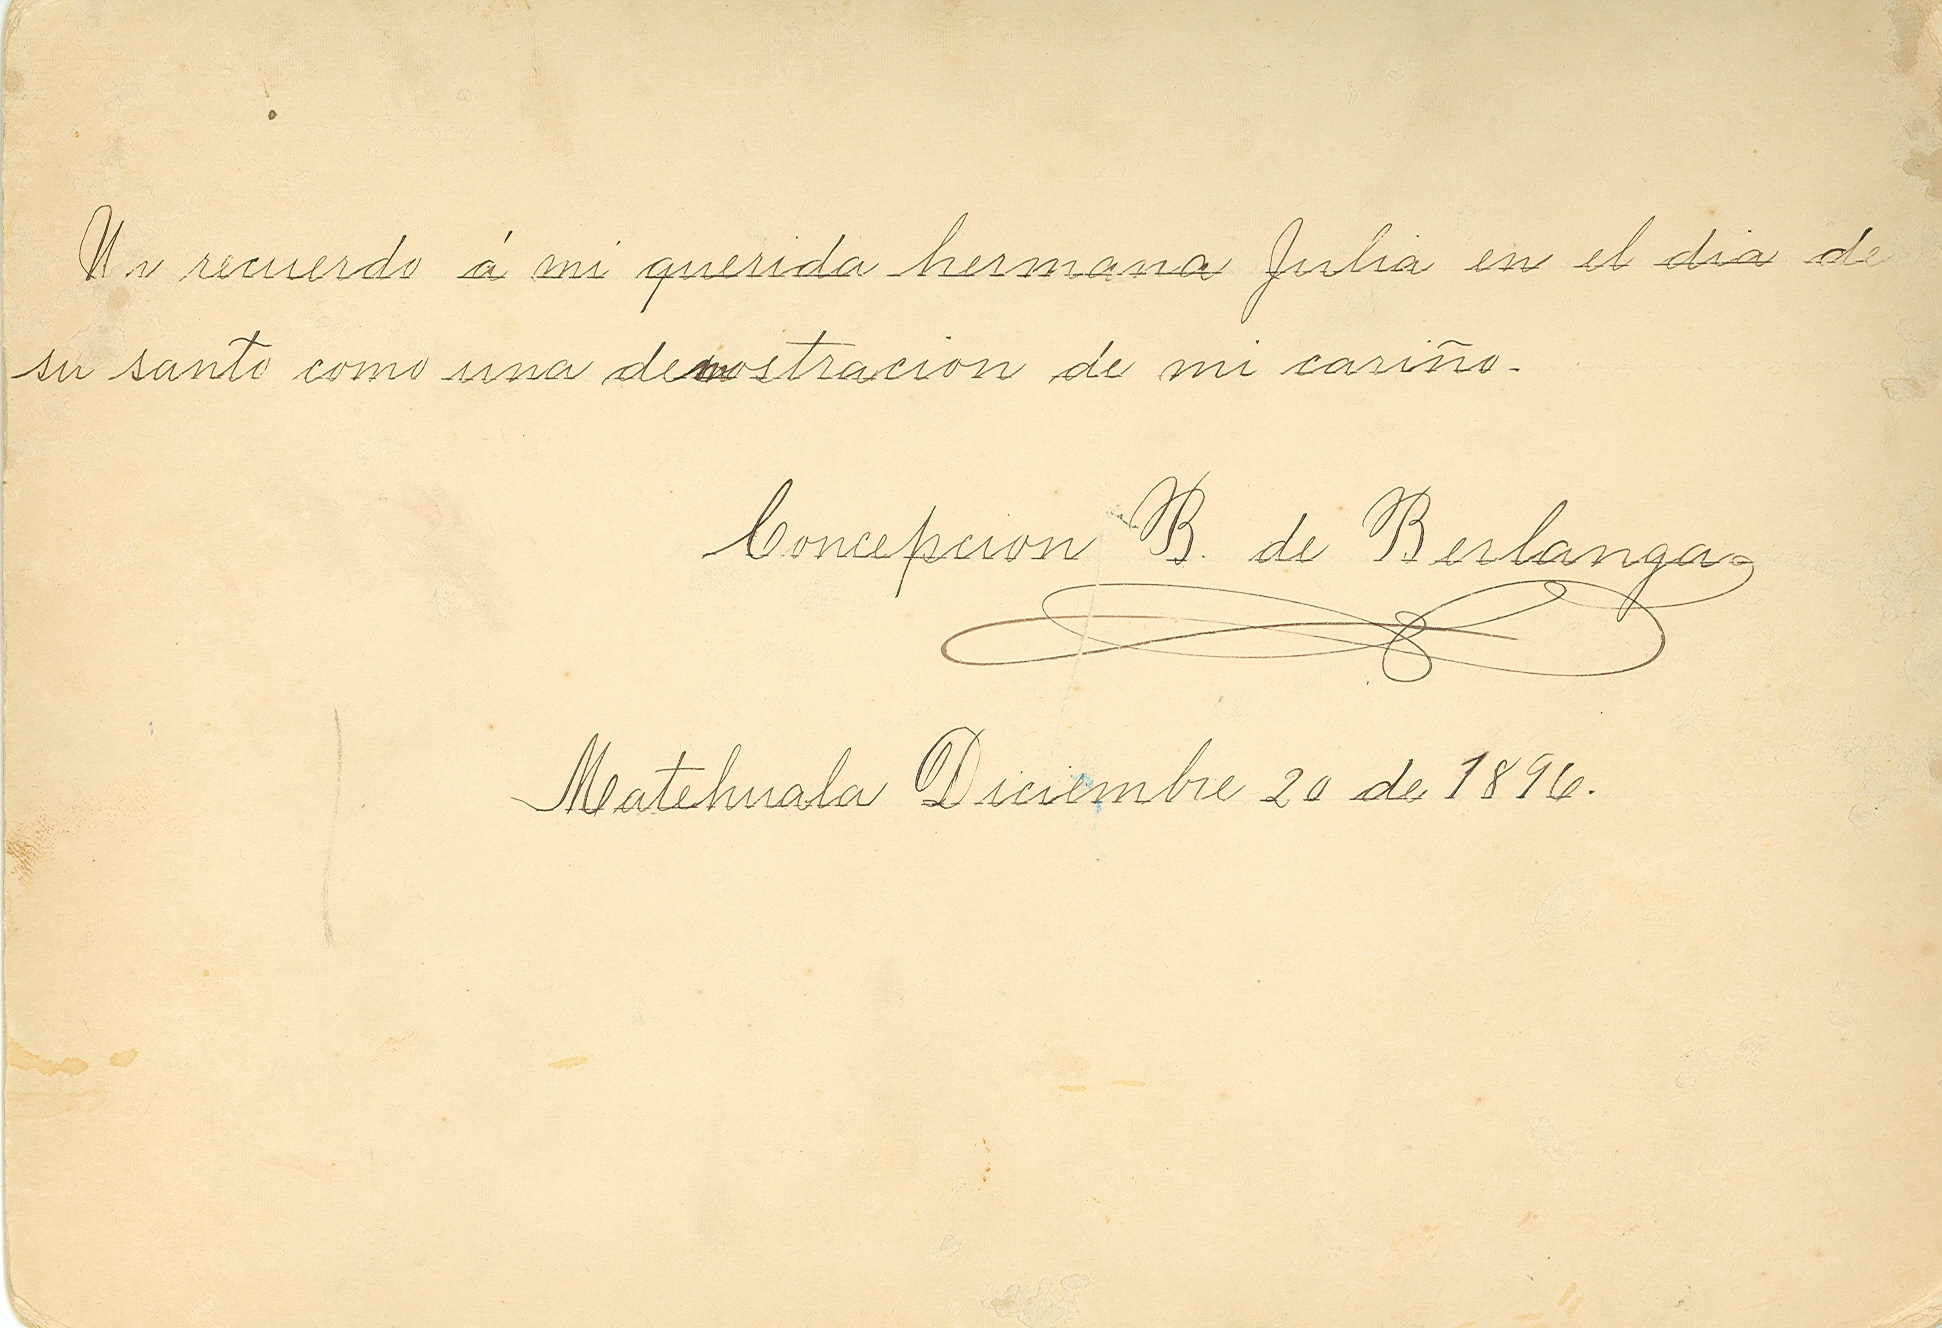 Un recuerdo á mi querida hermana Julia en el dia de
su santo como una demostracion de mi cariño.
Concepcion B. de Berlanga
Matehuala Diciembre 20 de 1896.